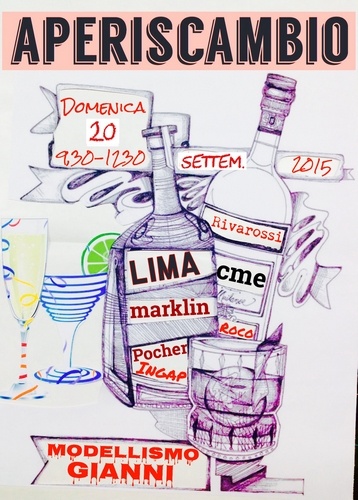 APERISCAMBIO
DOMENICA
20
9.30-12.30
SETTEM.
2015
Rivarossi
LIMA
cme
marklin
ROCO
Pocher
INGAP
MODELLISMO
GIANNI